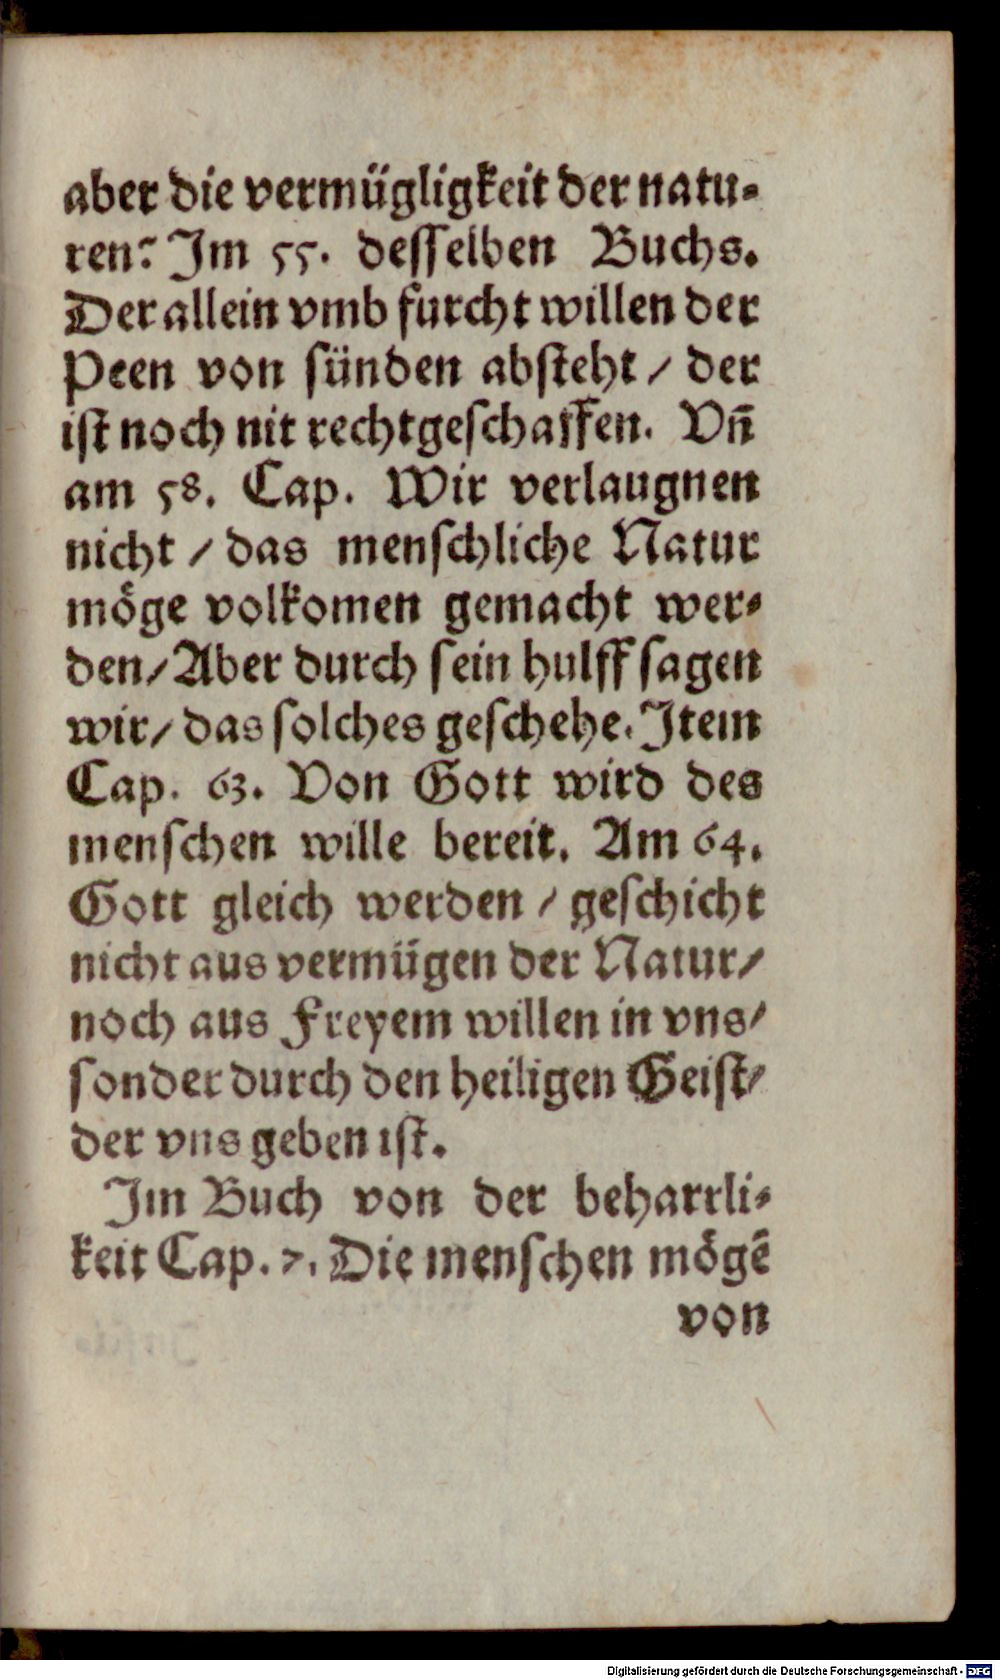 aber die vermügligkeit der natu⸗
ren? Im 55. desselben Buchs.
Der allein vmb furcht willen der
Peen von sünden absteht / der
ist noch nit rechtgeschaffen. Vñ
am 58. Cap. Wir verlaugnen
nicht / das menschliche Natur
möge volkomen gemacht wer⸗
den / Aber durch sein hulff sagen
wir / das solches geschehe. Item
Cap. 63. Von Gott wird des
menschen wille bereit. Am 64.
Gott gleich werden / geschicht
nicht aus vermügen der Natur /
noch aus Freyem willen in vns /
sonder durch den heiligen Geist /
der vns geben ist.
Im Buch von der beharrli⸗
keit Cap. 7. Die menschen mögẽ
von
Digitalisierung gefördert durch die Deutsche Forschungsgemeinschaft - DFG